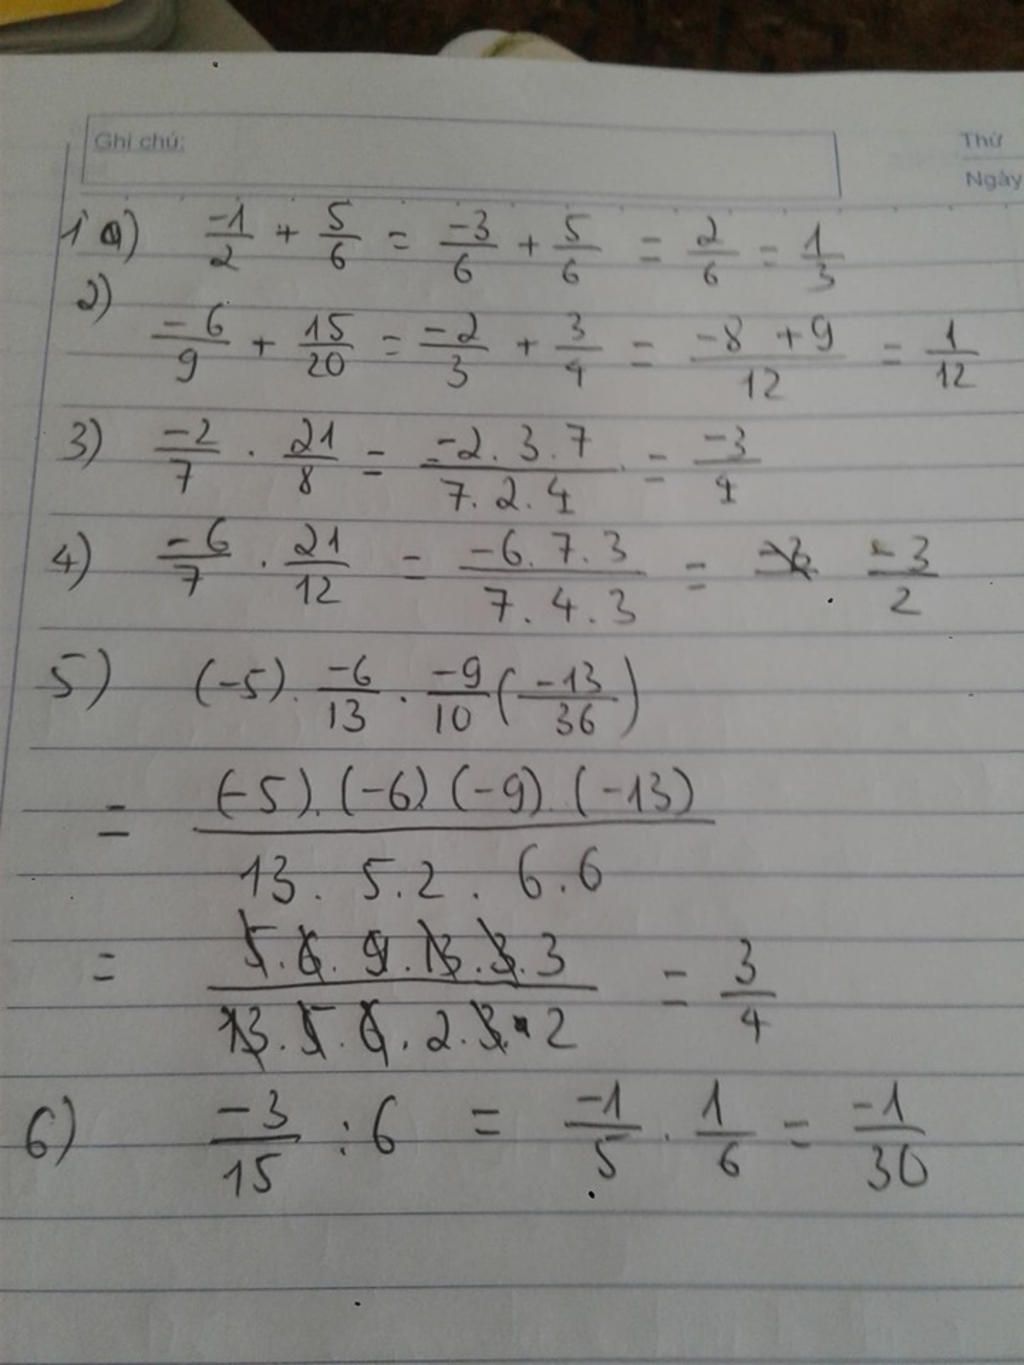 Ghi chú:
Thứ
Ngày
1 a) -1/2 + 5/6 = -3/6 + 5/6 = 2/6 = 1/3
2)
-6/9 + 15/20 = -2/3 + 3/4 = -8 +9/12 = 1/12
3) -2/7 . 21/8 = -2.3.7/7.2.4 = -3/4
4) -6/7 . 21/12 = -6.7.3/7.4.3 = -3/2
5) (-5). -6/13 . -9/10 (-13/36)
= (-5).(-6)(-9).(-13)/13. 5.2. 6.6
= 5.6.9.13.3.3/13.5.6.2.3.2 = 3/4
6) -3/15 : 6 = -1/5 . 1/6 = -1/30